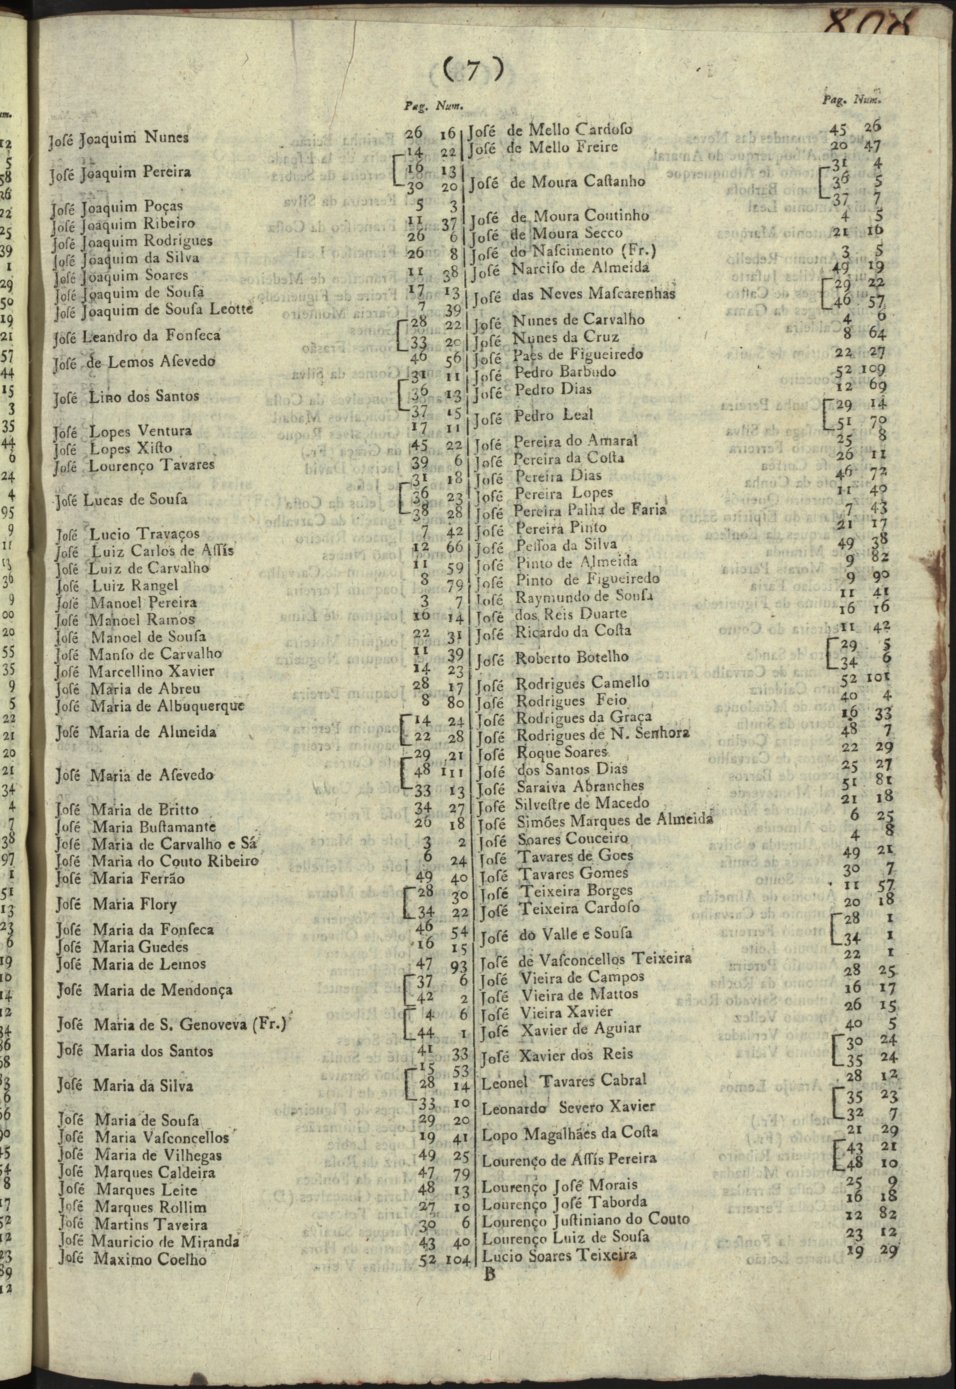 808
( 7 )
Pag. Num.
José Joaquim Nunes 26 16
José Joaquim Pereira 14 22
16 13
30 20
José Joaquim Poças 5 3
José Joaquim Ribeiro 11 37
José Joaquim Rodrigues 26 6
José Joaquim da Silva 26 8
José Joaquim Soares 11 38
José Joaquim de Sousa 17 13
José Joaquim de Sousa Leotte 7 39
José Leandro da Fonseca 28 22
33 20
José de Lemos Asevedo 46 56
José Lino dos Santos 31 11
36 13
37 15
José Lopes Ventura 17 11
José Lopes Xisto 45 22
José Lourenço Tavares 39 6
José Lucas de Sousa 31 18
36 23
38 28
José Lucio Travaços 7 42
José Luiz Carlos de Assis 12 66
José Luiz de Carvalho 11 59
José Luiz Rangel 8 79
José Manoel Pereira 3 7
José Manoel Ramos 16 14
José Manoel de Sousa 22 31
José Manso de Carvalho 11 39
José Marcellino Xavier 14 23
José Maria de Abreu 28 17
José Maria de Albuquerque 8 80
José Maria de Almeida 14 24
22 28
José Maria de Asevedo 29 21
48 111
33 13
José Maria de Britto 34 27
José Maria Bustamante 26 18
José Maria de Carvalho e Sá 3 2
José Maria do Couto Ribeiro 6 24
José Maria Ferrão 49 40
José Maria Flory 28 30
34 22
José Maria da Fonseca 46 54
José Maria Guedes 16 15
José Maria de Lemos 47 93
José Maria de Mendonça 37 6
42 2
José Maria de S. Genoveva (Fr.) 4 6
44 1
José Maria dos Santos 41 33
José Maria da Silva 15 53
28 14
33 10
José Maria de Sousa 29 20
José Maria Vasconcellos 19 41
José Maria de Vilhegas 49 25
José Marques Caldeira 47 79
José Marques Leite 48 13
José Marques Rollim 27 10
José Martins Taveira 30 6
José Mauricio de Miranda 43 40
José Maximo Coelho 52 104
Pag. Num.
José de Mello Cardoso 45 26
José de Mello Freire 20 47
José de Moura Castanho 31 4
36 5
37 7
José de Moura Coutinho 4 5
José de Moura Secco 21 16
José do Nascimento (Fr.) 3 5
José Narciso de Almeida 49 19
José das Neves Mascarenhas 29 22
46 57
José Nunes de Carvalho 4 6
José Nunes da Cruz 8 64
José Paes de Figueiredo 22 27
José Pedro Barbudo 52 109
José Pedro Dias 12 69
José Pedro Leal 29 14
51 70
José Pereira do Amaral 25 8
José Pereira da Costa 26 11
José Pereira Dias 46 72
José Pereira Lopes 11 40
José Pereira Palha de Faria 7 43
José Pereira Pinto 21 17
José Pessoa da Silva 49 38
José Pinto de Almeida 9 82
José Pinto de Figueiredo 9 90
José Raymundo de Sousa 11 41
José dos Reis Duarte 16 16
José Ricardo da Costa 11 42
José Roberto Botelho 29 5
34 6
José Rodrigues Camello 52 101
José Rodrigues Feio 40 4
José Rodrigues da Graça 16 33
José Rodrigues de N. Senhora 48 7
José Roque Soares 22 29
José dos Santos Dias 25 27
José Saraiva Abranches 51 81
José Silvestre de Macedo 21 18
José Simões Marques de Almeida 6 25
José Soares Couceiro 4 8
José Tavares de Goes 49 21
José Tavares Gomes 30 7
José Teixeira Borges 11 57
José Teixeira Cardoso 20 18
José do Valle e Sousa 28 1
34 1
José de Vasconcellos Teixeira 22 1
José Vieira de Campos 28 25
José Vieira de Mattos 16 17
José Vieira Xavier 26 15
José Xavier de Aguiar 40 5
José Xavier dos Reis 30 24
35 24
Leonel Tavares Cabral 28 12
Leonardo Severo Xavier 35 23
32 7
Lopo Magalhães da Costa 21 29
Lourenço de Assis Pereira 43 21
48 10
Lourenço José Morais 25 9
Lourenço José Taborda 16 18
Lourenço Justiniano do Couto 12 82
Lourenço Luiz de Sousa 23 12
Lucio Soares Teixeira 19 29
B